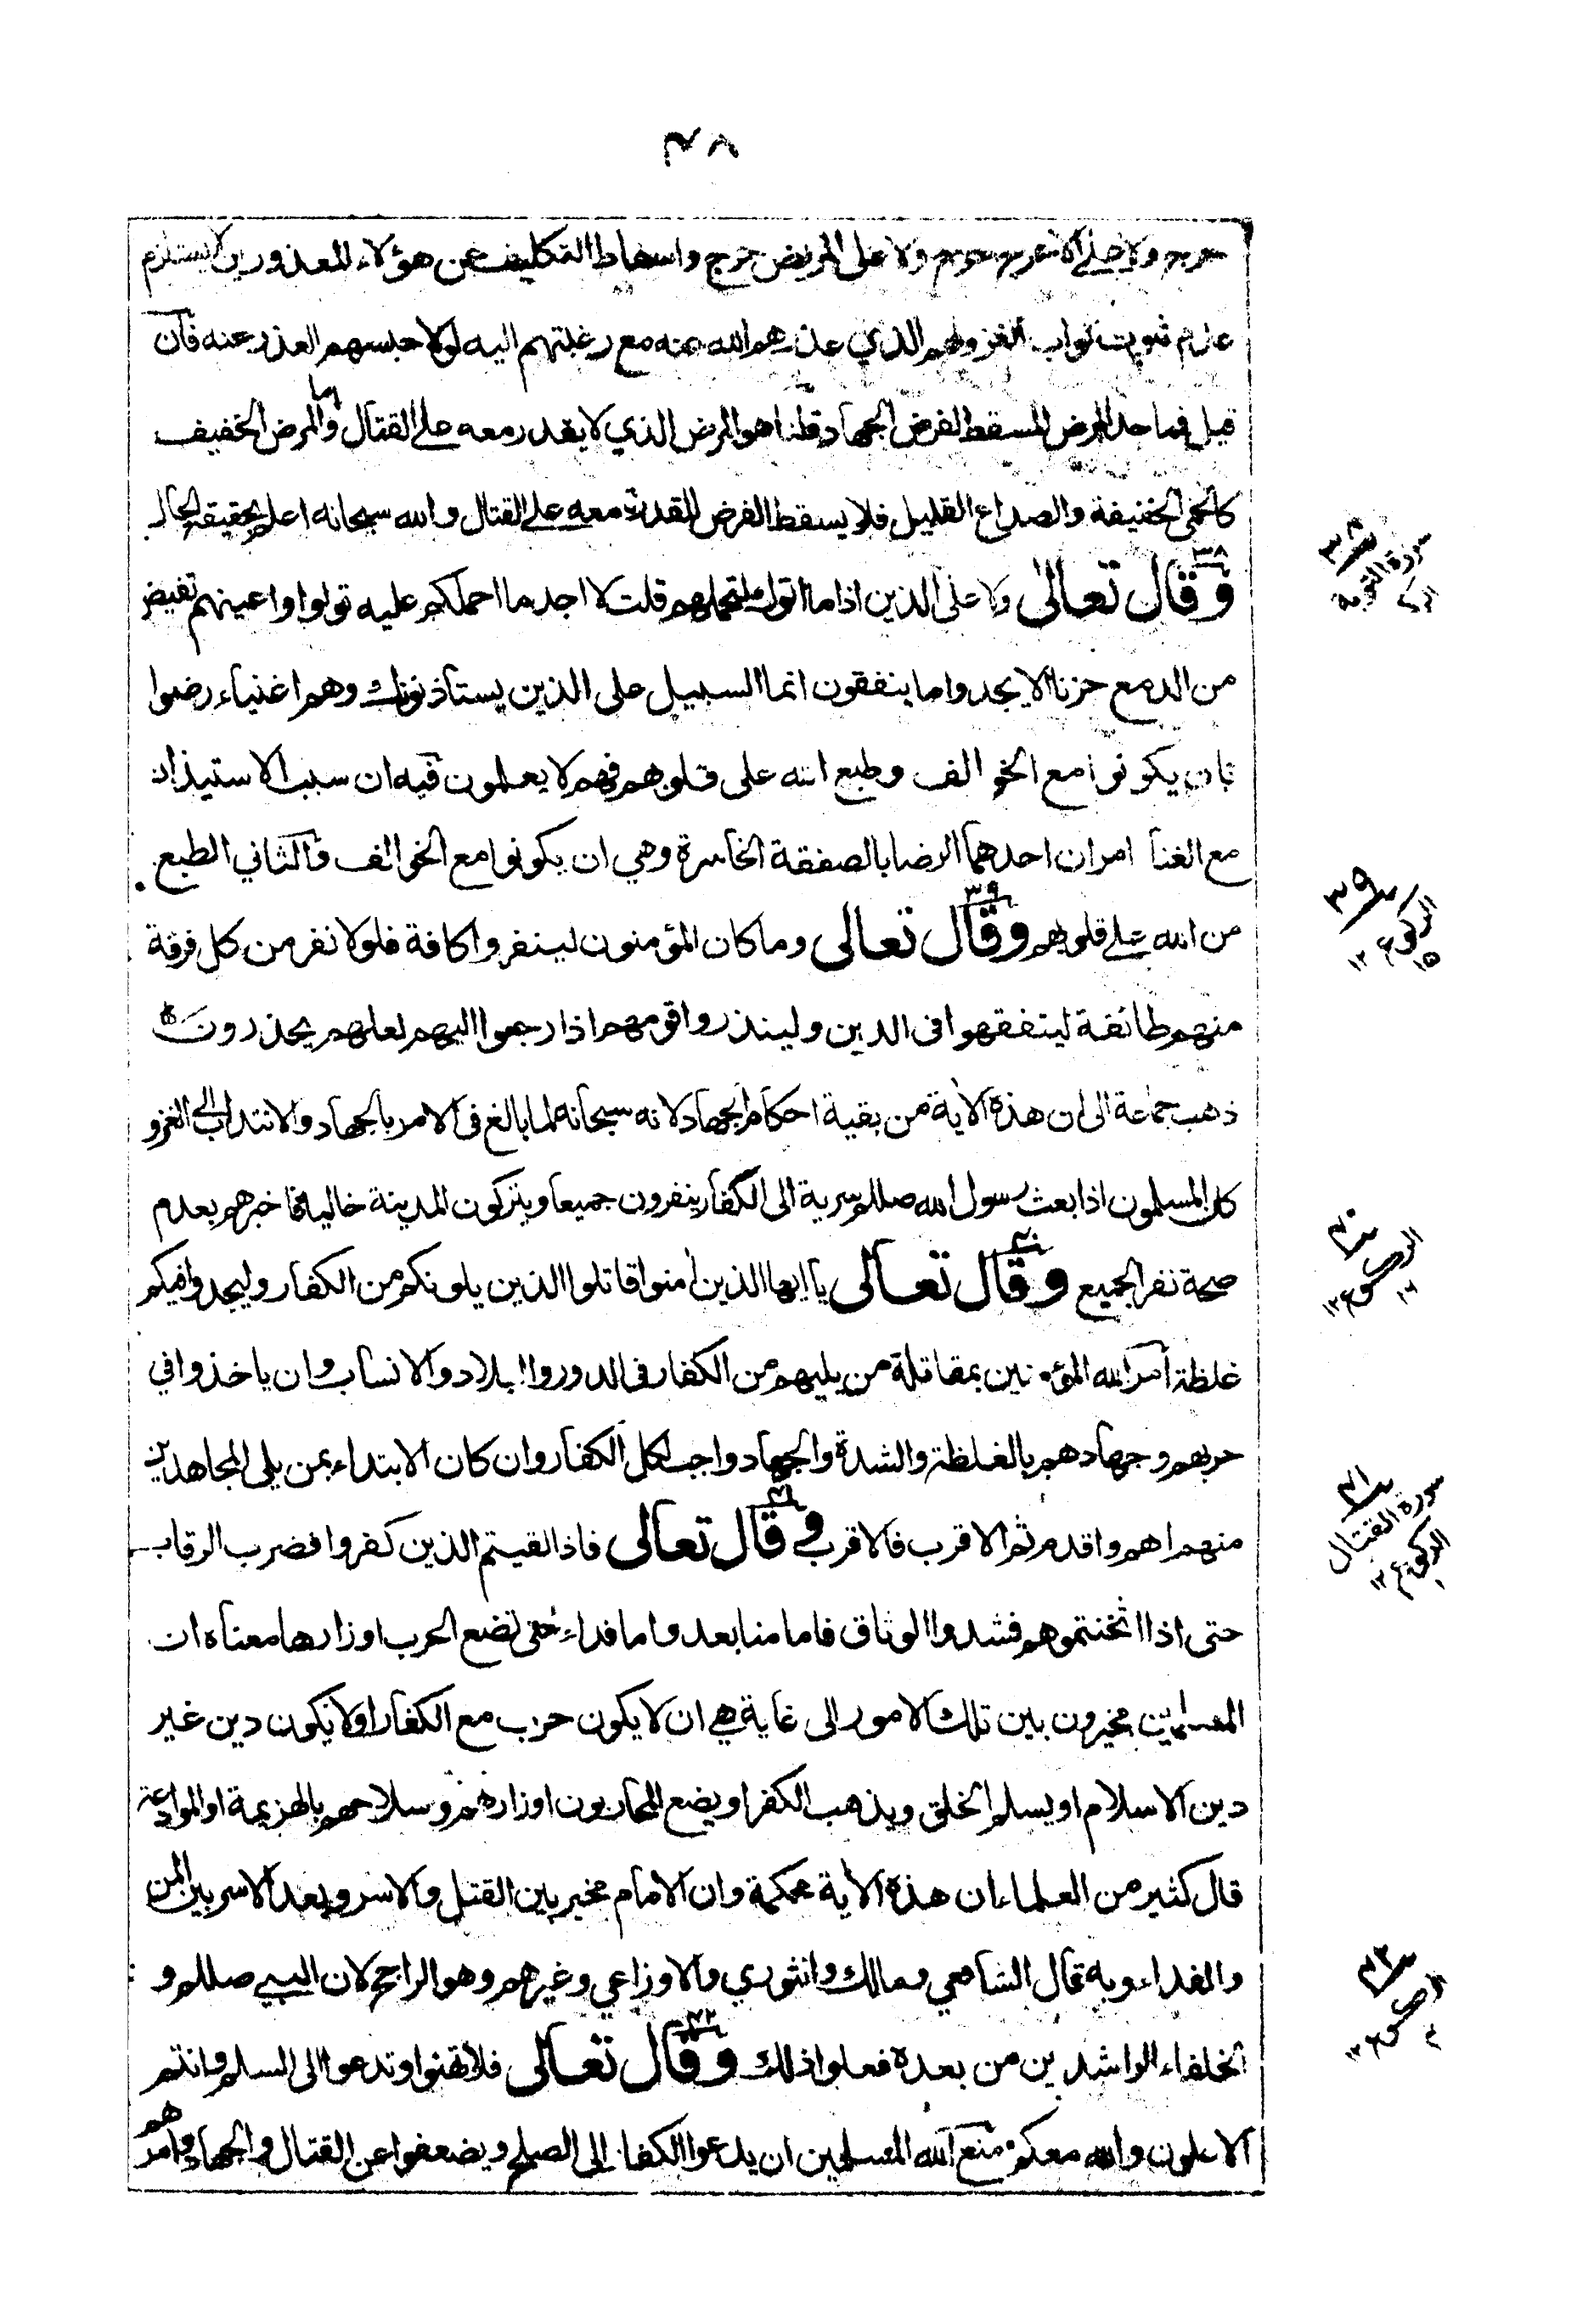 ٤٨
حرج ولا على الاعرج حرج ولا على المريض حرج واسقاط التكليف عن هؤلاء المعذورين لايستلزم
عدم ثبوت ثواب الغزو لهم الذي عذرهم الله عنه مع رغبتهم اليه لولا حبسهم العذر عنه فان
قيل فما حد المرض المسقط لفرض الجهاد قلنا هو المرض الذي لا يقدر معه على القتال واما المرض الخفيف
كالحمى الخفيفة والصداع القليل فلا يسقط الفرض للقدرة معه على القتال والله سبحانه اعلم بحقيقة الحال
٣٨
وقال تعالى ولا على الذين اذا ما اتوك لتحملهم قلت لا اجد ما احملكم عليه تولوا واعينهم تفيض
من الدمع حزنا الا يجدوا ما ينفقون انما السبيل على الذين يستأذنونك وهم اغنياء رضوا
بان يكونوا مع الخوالف وطبع الله على قلوبهم فهم لا يعلمون فيه ان سبب الاستيذان
مع الغنا امران احدهما الرضا بالصفقة الخاسرة وهي ان يكونوا مع الخوالف والثاني الطبع
من الله على قلوبهم ٣٩ وقال تعالى وما كان المؤمنون لينفروا كافة فلولا نفر من كل فرقة
منهم طائفة ليتفقهوا فى الدين ولينذروا قومهم اذا رجعوا اليهم لعلهم يحذرون
ذهب جماعة الى ان هذه الآية من بقية احكام الجهاد لانه سبحانه لما بالغ فى الامر بالجهاد والانتداب الى الغزو
كان المسلمون اذا بعث رسول الله صللم سرية الى الكفار ينفرون جميعا ويتركون المدينة خالية فاخبرهم بعدم
صحة نفر الجميع ٤٠ وقال تعالى يا ايها الذين آمنوا قاتلوا الذين يلونكم من الكفار وليجدوا فيكم
غلظة امر الله المؤمنين بمقاتلة من يليهم من الكفار فى الدور والبلاد والانساب وان ياخذوا في
حربهم وجهادهم بالغلظة والشدة والجهاد واجب لكل الكفار وان كان الابتداء بمن يلى المجاهدين
منهم اهم واقدم ثم الاقرب فالاقرب ٤١ وقال تعالى فاذا لقيتم الذين كفروا فضرب الرقاب
حتى اذا اثخنتموهم فشدوا الوثاق فاما منا بعد واما فداء حتى تضع الحرب اوزارها معناه ان
المسلمين مخيرون بين تلك الامور الى غاية هي ان لا يكون حرب مع الكفار او لا يكون دين غير
دين الاسلام او يسلم الخلق ويذهب الكفر او يضع المحاربون اوزارهم وسلاحهم بالهزيمة او الموادعة
قال كثير من العلماء ان هذه الآية محكمة وان الامام مخير بين القتل والاسر وبعد الاسر بين المن
والفداء وبه قال الشافعي ومالك والثوري والاوزاعي وغيرهم وهو الراجح لان النبي صللم و
الخلفاء الراشدين من بعده فعلوا ذلك ٤٢ وقال تعالى فلا تهنوا وتدعوا الى السلم وانتم
الاعلون والله معكم منع الله المسلمين ان يدعوا الكفار الى الصلح ويضعفوا عن القتال والجهاد وامرهم
٣٨
سورة التوبة
٣٩
الركوع
١٥ ١٢
٤٠
الركوع
١٦ ١٢
٤١
سورة القتال
الركوع
١ ١٢
٤٢
الركوع
٤ ١٢